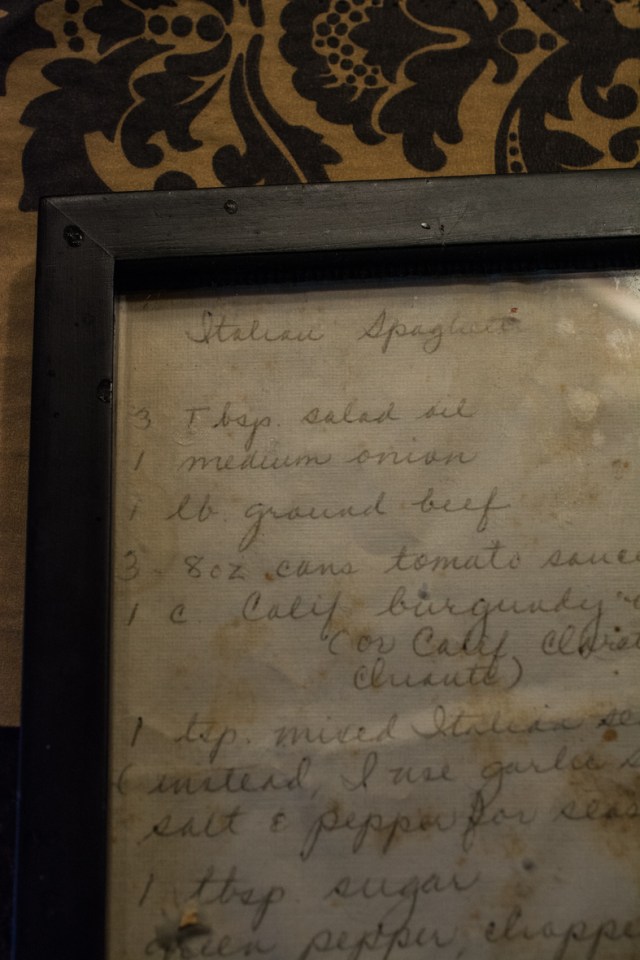 Italian Spaghetti
3 Tbsp. salad oil
1 medium onion
1 lb. ground beef
3 8oz cans tomato sauce
1 c. Calif burgundy
(or Calif claret
chianti)
1 tsp. mixed Italian
(instead, I use garlic
salt & pepper for
1 tbsp sugar
green pepper, choppe